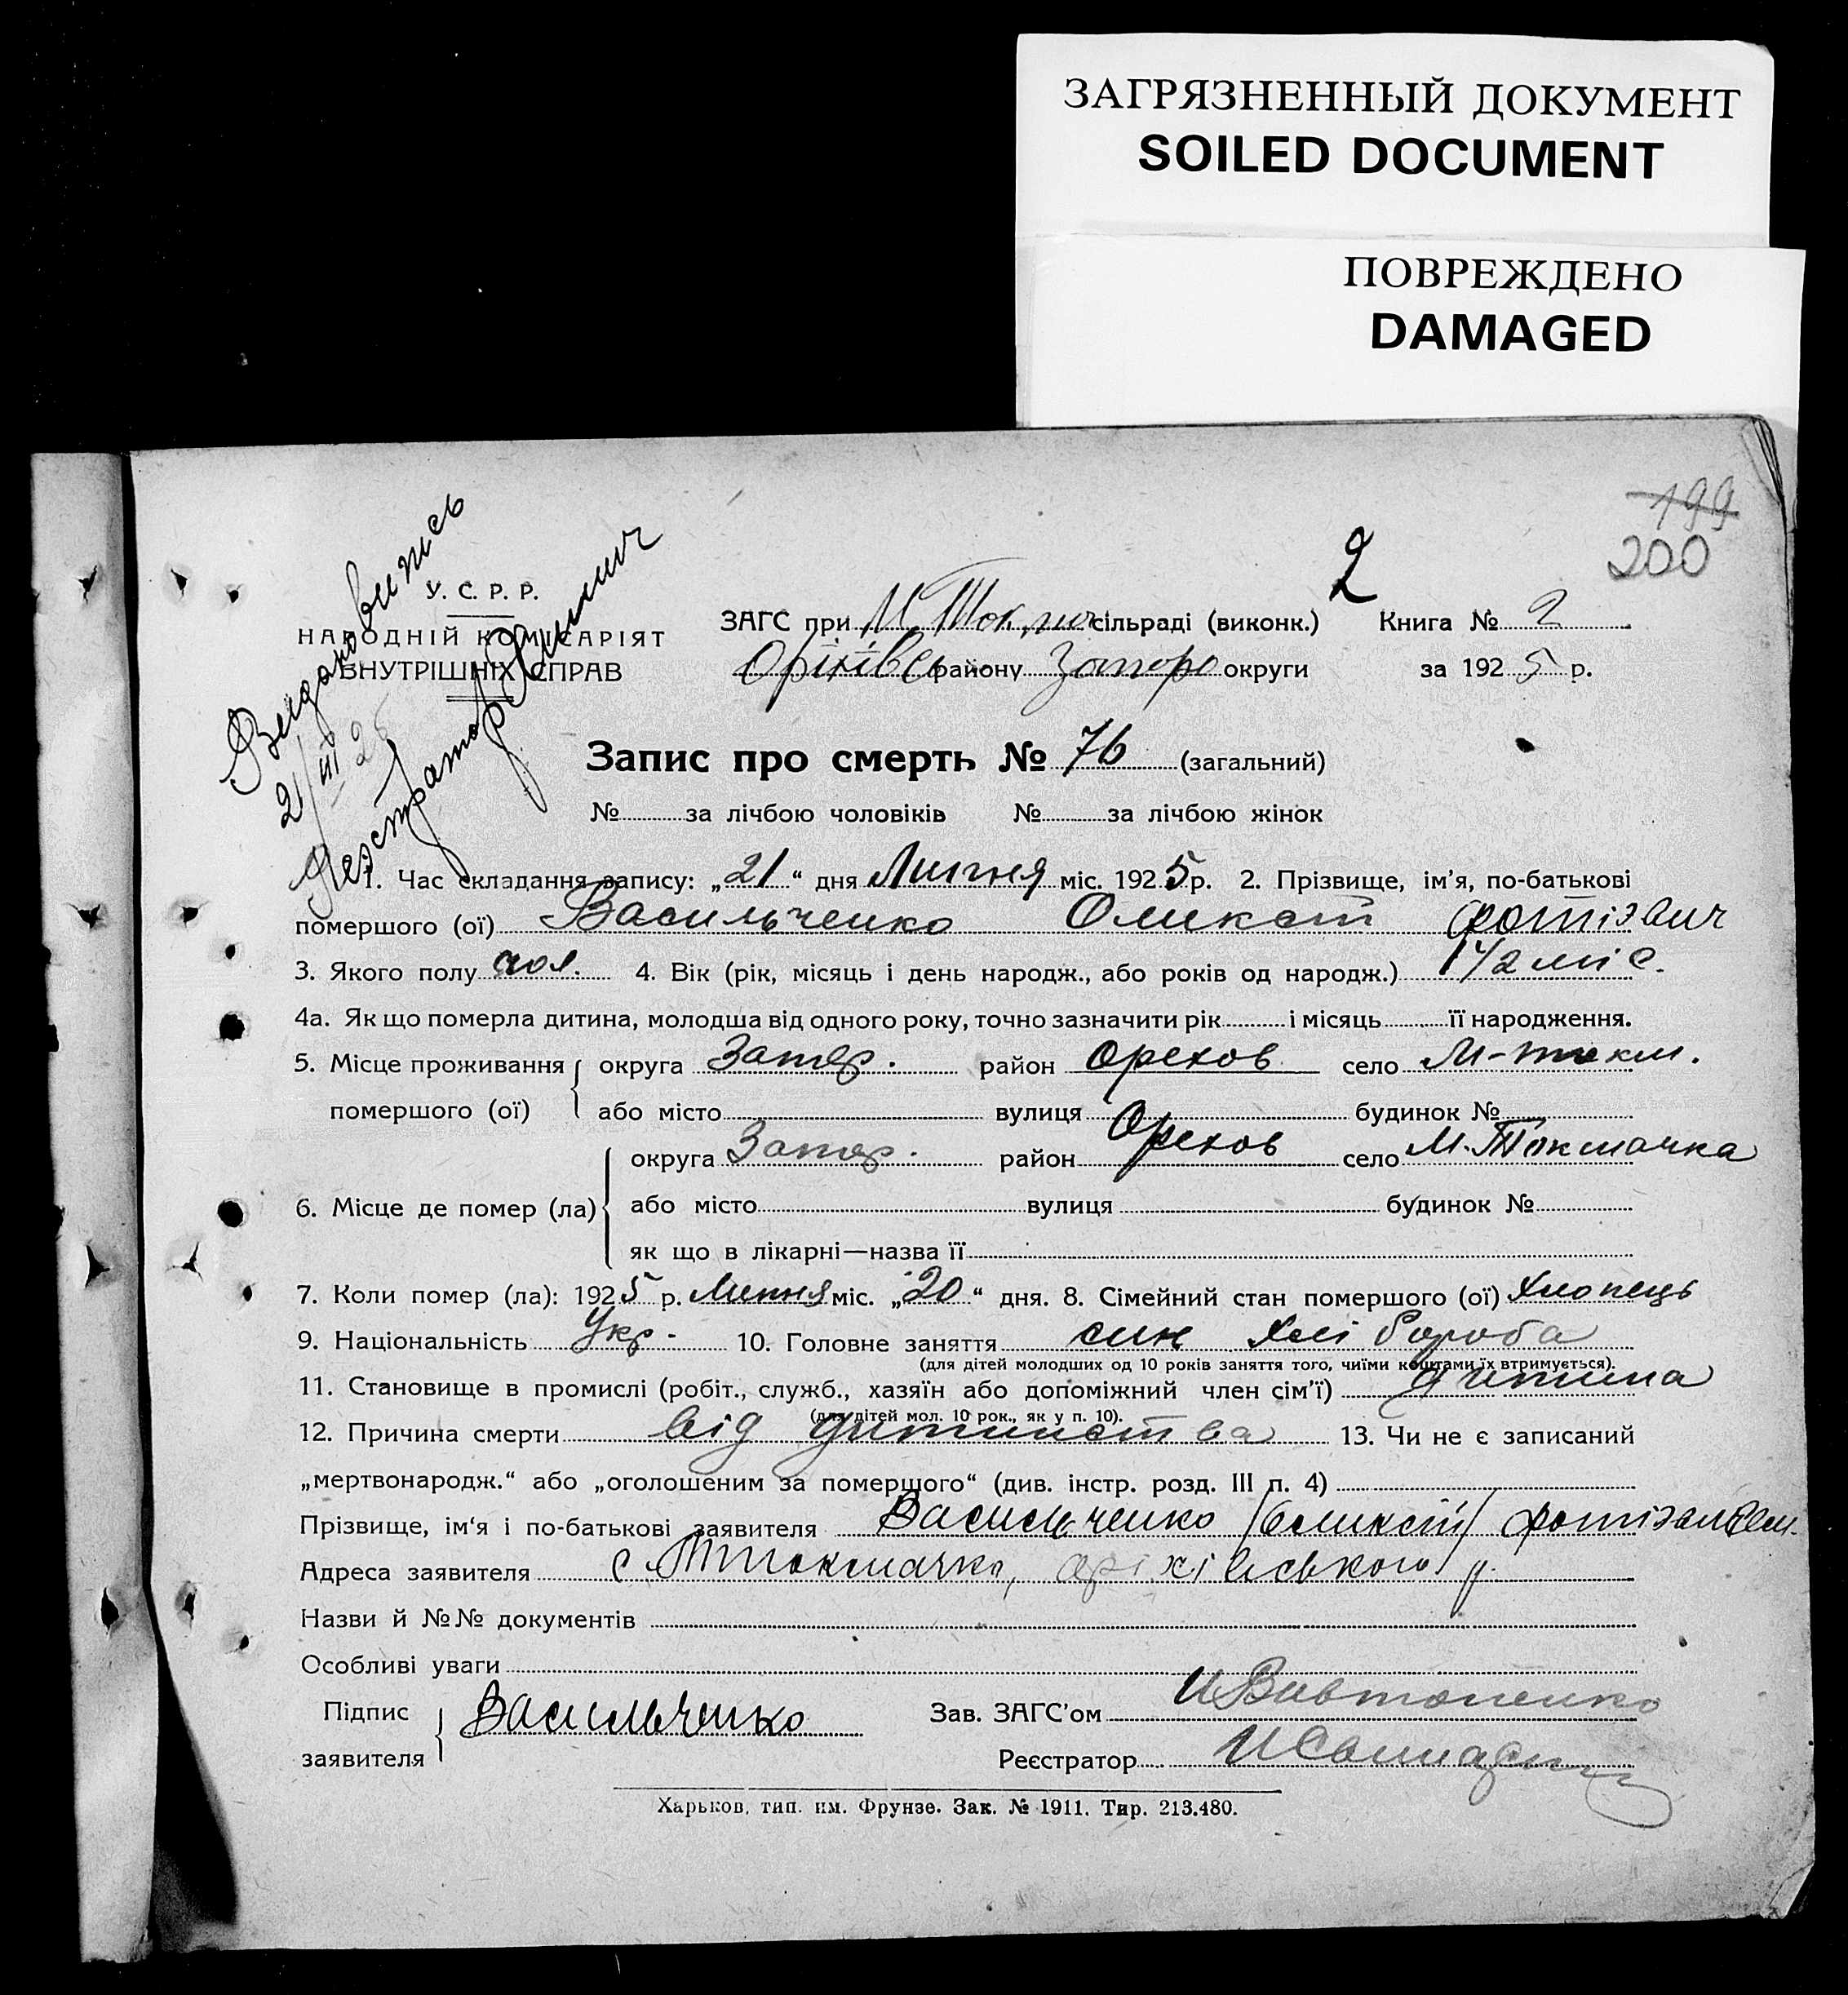 ЗАГРЯЗНЕННЫЙ ДОКУМЕНТ
SOILED DOCUMENT
ПОВРЕЖДЕНО
DAMAGED
199
200
2
Видано випись
21/III 26
У. С. Р. Р.
НАРОДНІЙ КОМІСАРІЯТ
ВНУТРІШНІХ СПРАВ
ЗАГС при М. Токмач сільраді (виконк.) Книга № 2
Оріхівсь району Запоро округи за 1925 р.
Запис про смерть № 76 (загальний)
№ за лічбою чоловіків № за лічбою жінок
1. Час складання запису: „21“ дня Липня міс. 1925 р. 2. Прізвище, ім'я, по-батькові
помершого (ої) Васильченко Оликсій
3. Якого полу чол. 4. Вік (рік, місяць і день народж., або років од народж.) 1 1/2 міс.
4а. Як що померла дитина, молодша від одного року, точно зазначити рік і місяць її народження.
5. Місце проживання округа Запор. район Орехов село М-токм.
помершого (ої) або місто вулиця будинок №
округа Запор. район Орехов село М. Токмачка
6. Місце де помер (ла) або місто вулиця будинок №
як що в лікарні—назва її
7. Коли помер (ла): 1925 р. Липня міс. „20“ дня. 8. Сімейний стан помершого (ої) хлопець
9. Національність Укр. 10. Головне заняття син хліборода
(для дітей молодших од 10 років заняття того, чиїми коштами їх втримується).
11. Становище в промислі (робіт., служб., хазяїн або допоміжний член сім'ї) дитина
(для дітей мол. 10 рок., як у п. 10).
12. Причина смерти від дитинства 13. Чи не є записаний
„мертвонародж.“ або „оголошеним за помершого“ (див. інстр. розд. III п. 4)
Прізвище, ім'я і по-батькові заявителя Васильченко
Адреса заявителя с М Токмачка, оріхівського р.
Назви й №№ документів
Особливі уваги
Підпис заявителя Васильченко Зав. ЗАГС'ом
Реєстратор
Харьков, тип. им. Фрунзе. Зак. № 1911. Тир. 213.480.